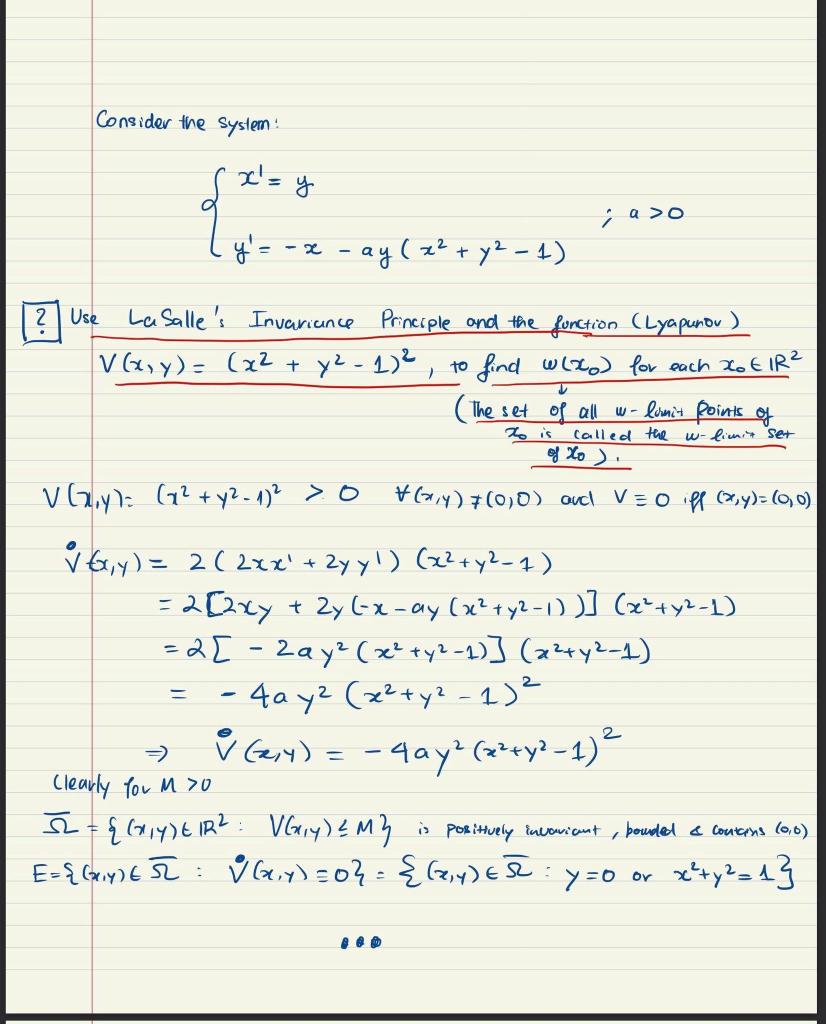 Consider the system:
x' = y
; a > 0
y' = - x - ay ( x² + y² - 1 )
? Use La Salle's Invariance Principle and the function (Lyapunov)
V(x,y) = (x² + y² - 1)² , to find ω(x₀) for each x₀ ∈ ℝ²
↓
(The set of all ω-limit points of
x₀ is called the ω-limit set
of x₀).
V(x,y) = (x² + y² - 1)² > 0 ∀(x,y) ≠ (0,0) and V ≡ 0 iff (x,y) = (0,0)
V̇(x,y) = 2 ( 2xx' + 2yy' ) (x² + y² - 1)
= 2 [2xy + 2y (-x - ay (x² + y² - 1) )] (x² + y² - 1)
= 2 [ - 2ay² (x² + y² - 1)] (x² + y² - 1)
= - 4ay² (x² + y² - 1)²
⇒ V̇(x,y) = - 4ay² (x² + y² - 1)²
Clearly for M > 0
Ω̅ = { (x,y) ∈ ℝ² : V(x,y) ≤ M } is positively invariant , bounded & contains (0,0)
E = { (x,y) ∈ Ω̅ : V̇(x,y) = 0 } = { (x,y) ∈ Ω̅ : y = 0 or x² + y² = 1 }
...